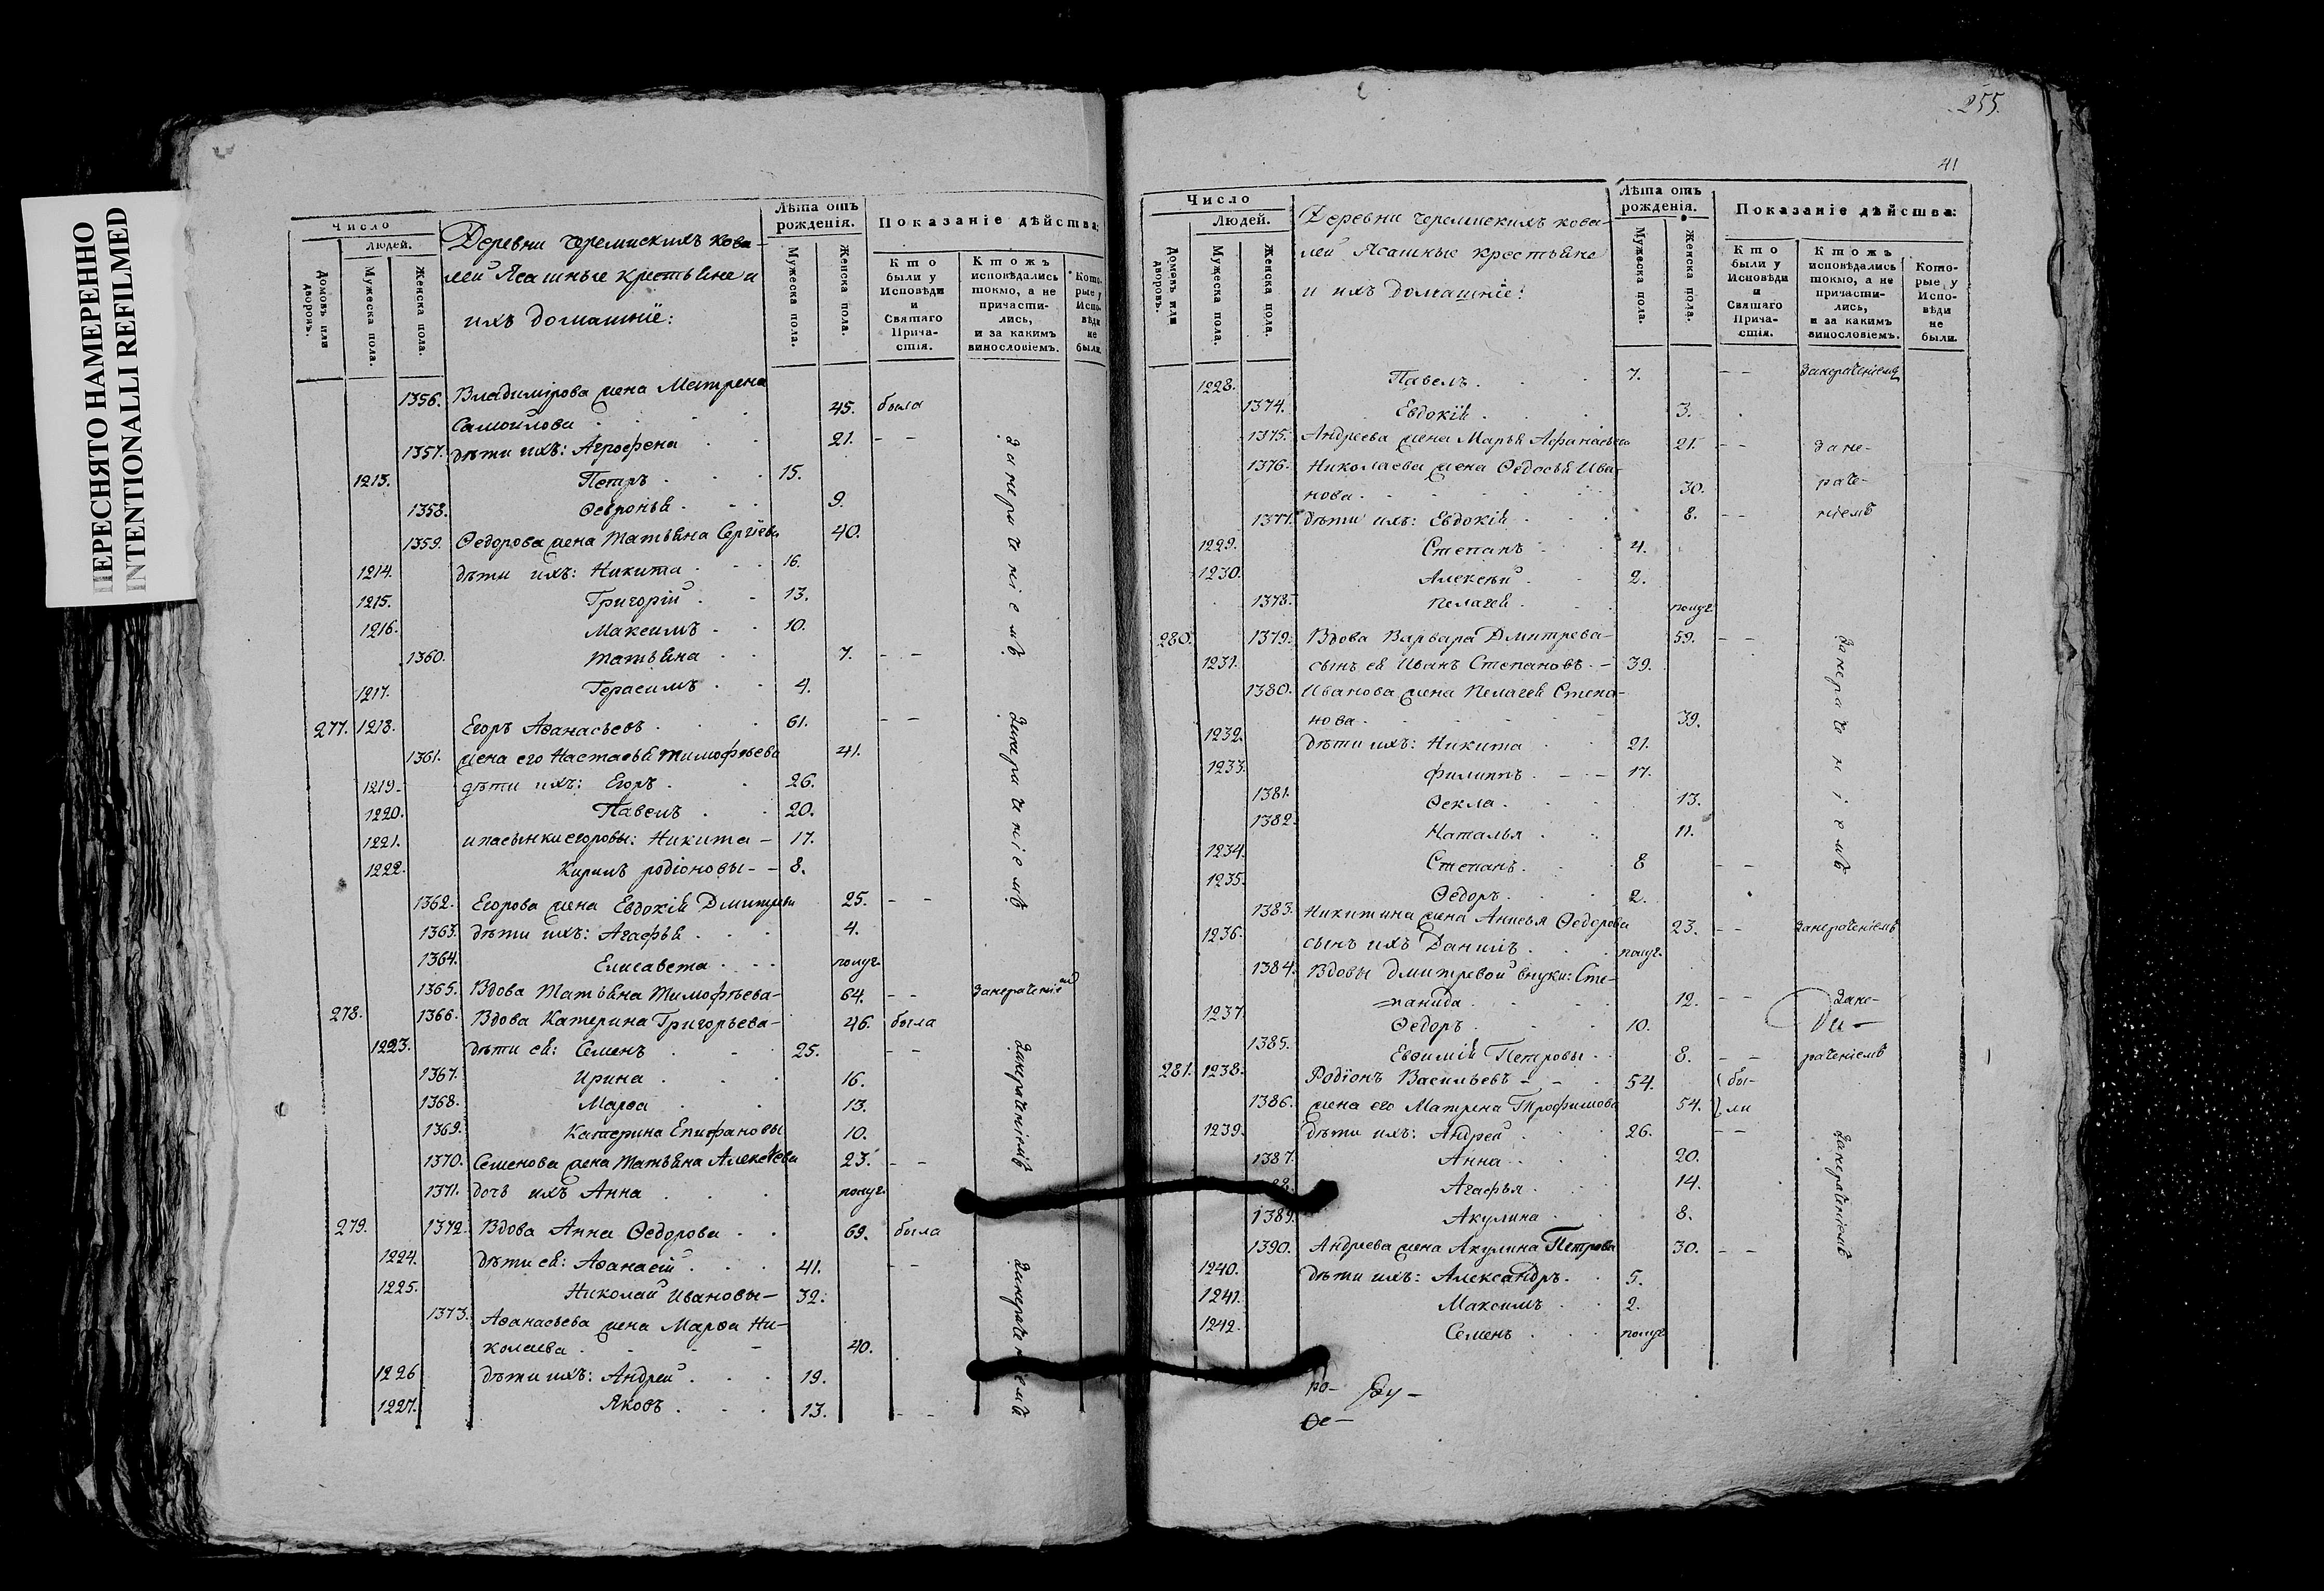 ПЕРЕСНЯТО НАМЕРЕННО
INTENTIONALLI REFILMED
Число
Людей.
Домовъ или дворовъ.
Мужеска пола.
Женска пола.
Деревни черемискихъ кова-
лей Ясашные крестьяне и
ихъ домашніе:
Лѣта отъ рожденія.
Мужеска пола.
Женска пола.
Показаніе дѣйства:
Кто были у Исповѣди и Святаго Прича-стія.
Ктожъ исповѣдались токмо, а не причасти-лись, и за какимъ винословіемъ.
Кото-рые у Испо-вѣди не были.
1356. Владимірова жена Матрена
Самоилова 45. была
1357. дѣти ихъ: Агрофена 21. - -
1213. Петръ 15.
1358. Ѳевронья 9.
1359. Ѳедорова жена Татьяна Сергіева 40.
1214. дѣти ихъ: Никита 16.
1215. Григорій 13.
1216. Максимъ 10.
1360. Татьяна 7. - -
1217. Герасимъ 4.
занераченіемъ
277. 1218. Егоръ Аѳанасьевъ 61. - -
1361. жена его Настасья Тимофѣева 41.
1219. дѣти ихъ: Егоръ 26.
1220. Павелъ 20.
1221. и пасынки егоровы: Никита - 17.
1222. Кирилъ родіоновы - - 8.
1362. Егорова жена Евдокія Дмитрева 25. - -
занераченіемъ
1363. дѣти ихъ: Агафья 4.
1364. Елисавета полуг.
1365. Вдова Татьяна Тимофѣева - 64. - - занераченіемъ
278. 1366. Вдова Катерина Григорьева - 46. была
1223. дѣти ея: Семенъ 25. - -
1367. Ирина 16.
1368. Марѳа 13.
1369. Катерина Епифановы 10.
1370. Семенова жена Татьяна Алексѣева 23. - -
занераченіемъ
1371. дочь ихъ Анна полуг.
279. 1372. Вдова Анна Ѳедорова 69. была
1224. дѣти ея: Аѳанасій 41. - -
1225. Николай Ивановы - 32.
1373. Аѳанасьева жена Марѳа Ни-
колаева 40.
1226 дѣти ихъ: Андрей 19.
1227. Яковъ 13. - -
занераченіемъ
255.
41
Число
Людей.
Домовъ или дворовъ.
Мужеска пола.
Женска пола.
Деревни черемискихъ кова-
лей Ясашные крестьяне
и ихъ домашніе:
Лѣта отъ рожденія.
Мужеска пола.
Женска пола.
Показаніе дѣйства:
Кто были у Исповѣди и Святаго Прича-стія.
Ктожъ исповѣдались токмо, а не причасти-лись, и за какимъ винословіемъ.
Кото-рые у Испо-вѣди не были.
1228. Павелъ 7. - - занераченіемъ
1374. Евдокія 3.
1375. Андреева жена Марья Афанасьева 21. - - зане-
1376. Николаева жена Ѳедосья Ива-
нова 30. раче-
1377. дѣти ихъ: Евдокія 8. - - ніемъ
1229. Степанъ 4.
1230. Алексѣй 2.
1378. Пелагея полуг.
280. 1379. Вдова Варвара Дмитрева - 59. - -
1231. сынъ ея Иванъ Степановъ - 39.
1380. Иванова жена Пелагея Степа-
нова 39.
1232. дѣти ихъ: Никита 21.
1233. Филиппъ 17.
1381. Ѳекла 13.
1382. Наталья 11.
1234. Степанъ 8 - -
занераченіемъ
1235. Ѳедоръ 2.
1383. Никитина жена Анисья Ѳедорова 23. - - занераченіемъ
1236. сынъ ихъ Данилъ полуг.
1384. Вдовы дмитревой внуки: Сте-
панида 12. - - зане-
1237. Ѳедоръ 10.
1385. Евѳимія Петровы 8. - - раченіемъ
281. 1238. Родіонъ Васильевъ - - 54. бы-
1386. жена его Матрена Трофимова 54. ли
1239. дѣти ихъ: Андрей 26. - -
1387. Анна 20.
88. Агафья 14.
1389. Акулина 8.
1390. Андреева жена Акулина Петрова 30. - -
занераченіемъ
1240. дѣти ихъ: Александръ 5.
1241. Максимъ 2.
1242. Семенъ полуг.